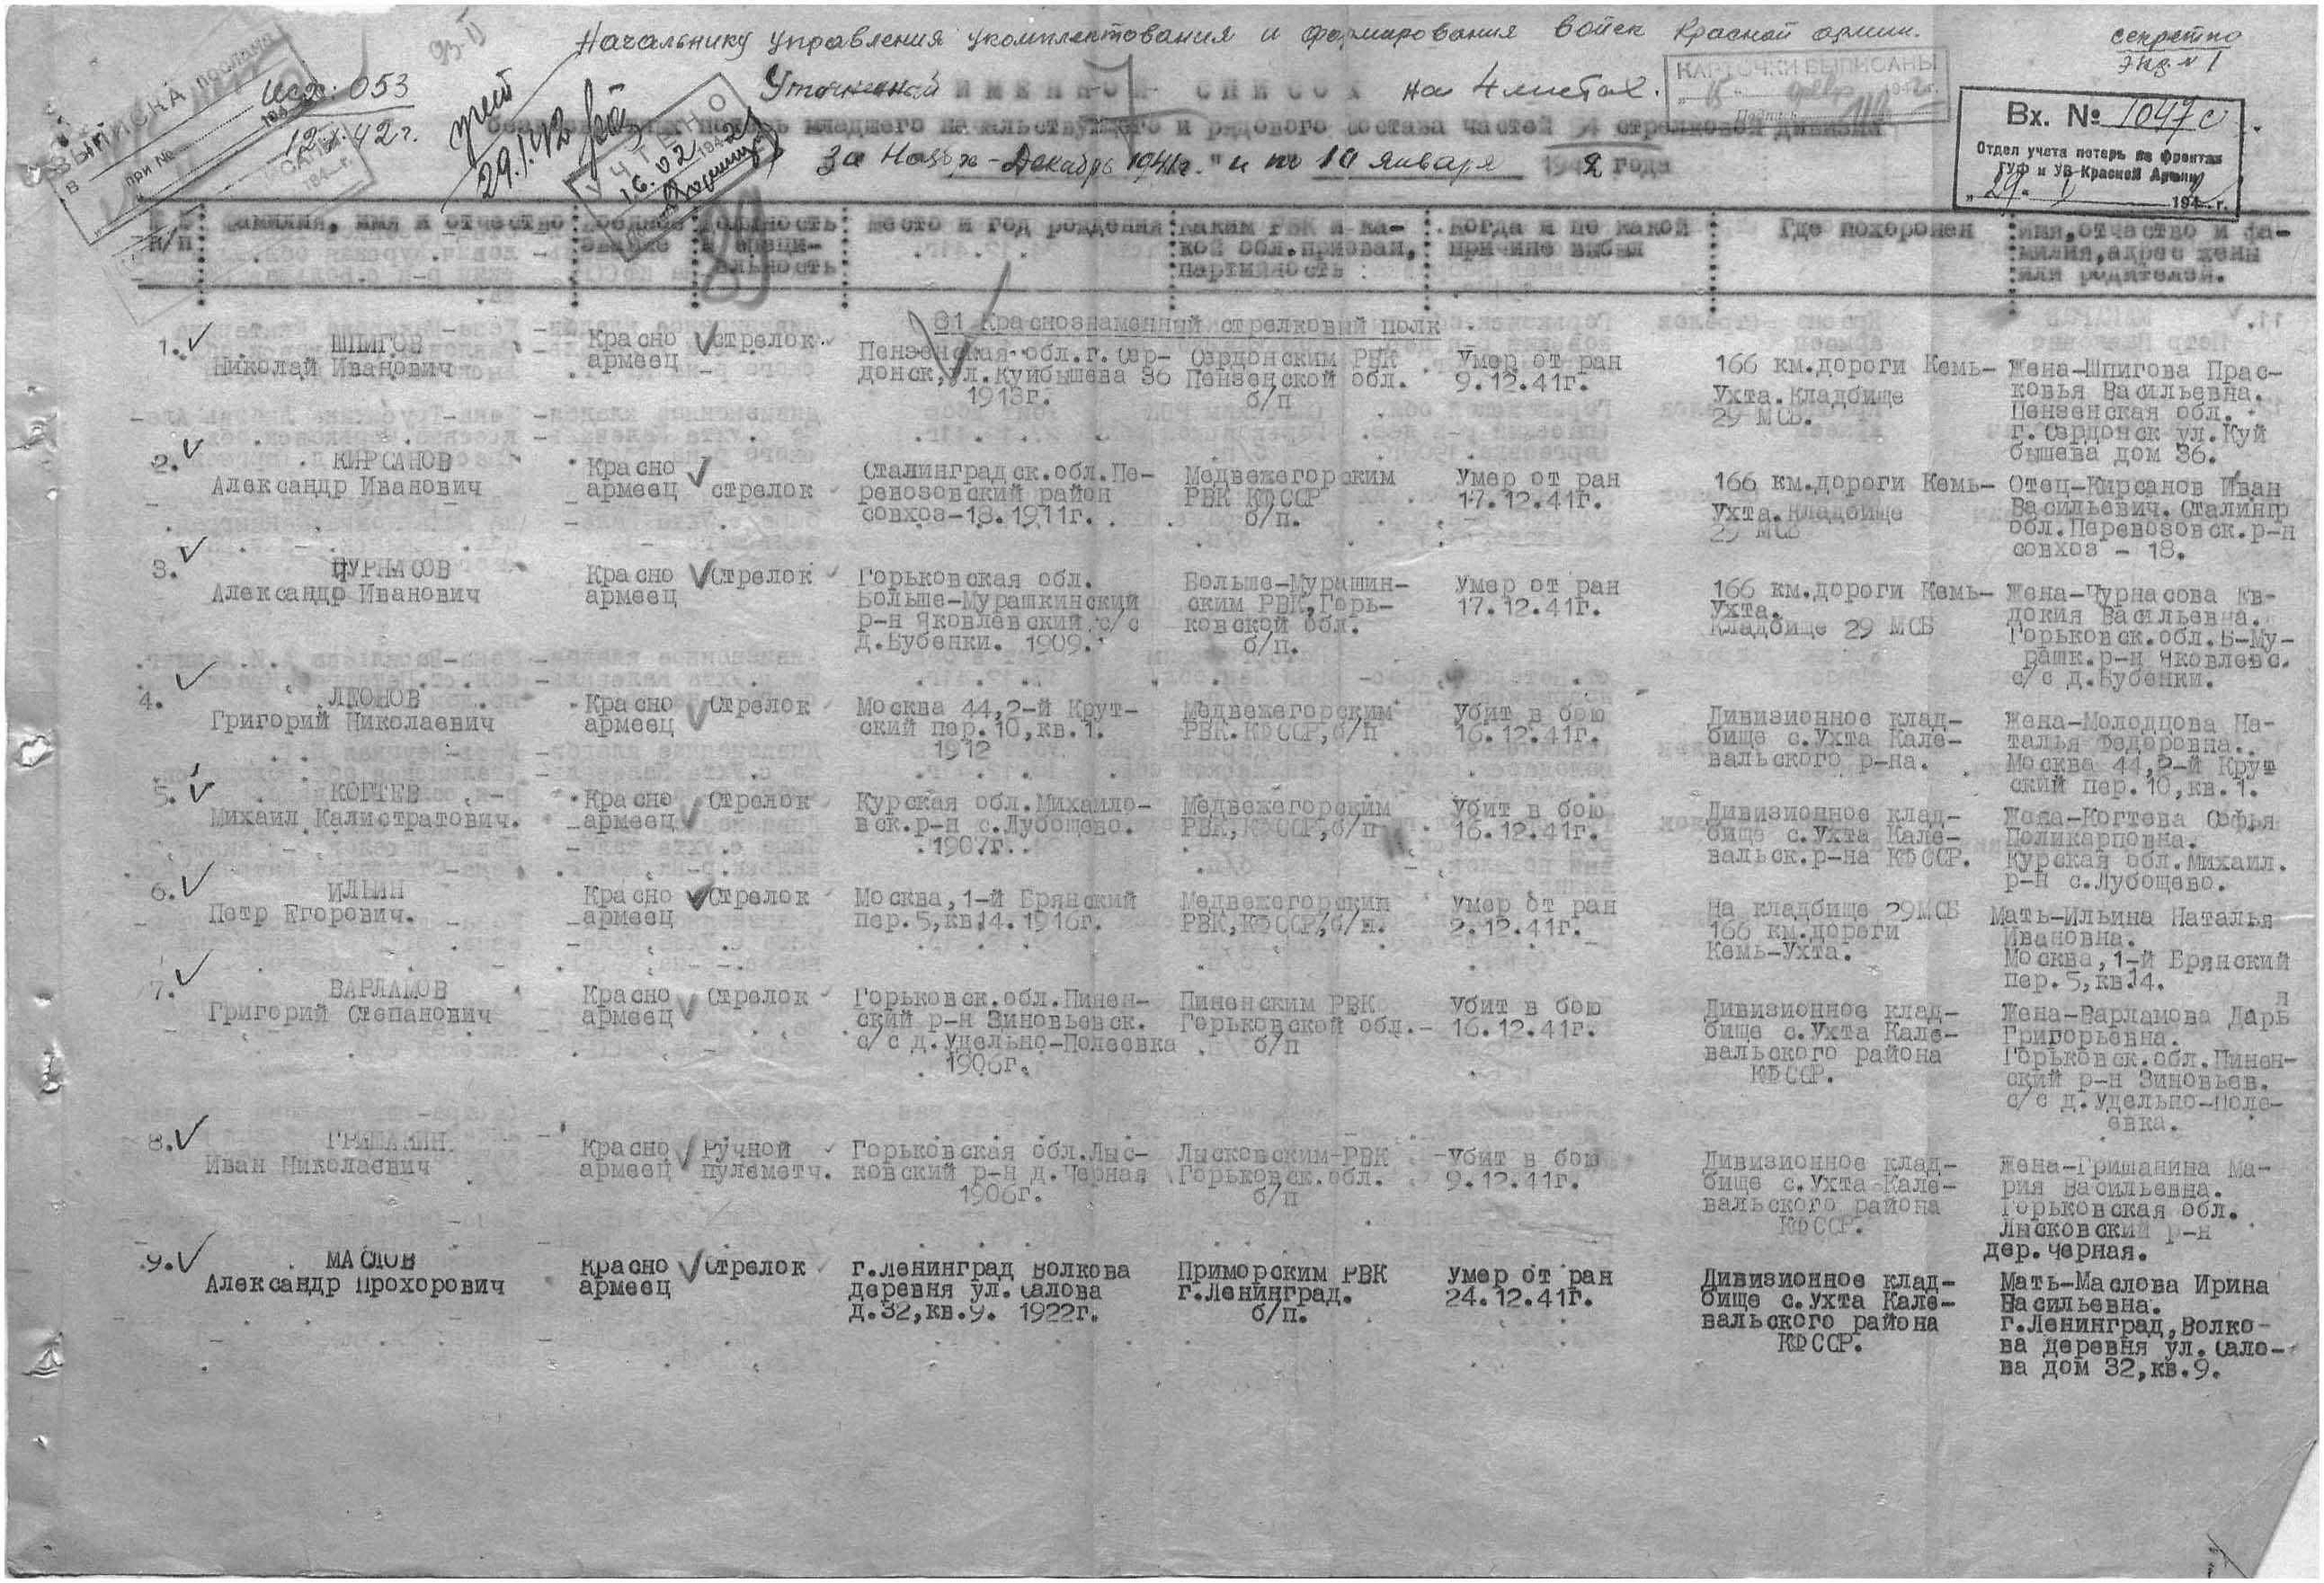 Начальнику управления укомплектования и формирования войск Красной армии.
секретно
экз № 1
Исх: 053
12.1.42г.
29.1.42
Уточненный ИМЕННОЙ СПИСОК на 4 листах.
КАРТОЧКИ ВЫПИСАНЫ
безвозвратных потерь младшего начальствующего и рядового состава частей 54 стрелковой дивизии
За Ноябрь-Декабрь 1941г. "и по 10 января 1942 года
ВЫПИСКА ПОСЛАНА
при №
УЧТЕНО
16.02 1942
Вх. № 1047с
Отдел учета потерь на фронтах
ГУФ и УВ Красной Армии
"29. 1 194 г.
№ п/п
фамилия, имя и отчество
военное звание
должность и специальность
место и год рождения
каким РВК и какой обл. призван, партийность
когда и по какой причине выбыл
Где похоронен
имя, отчество и фамилия, адрес жены или родителей.
81 Краснознаменный стрелковый полк
1. ШПИГОВ
Николай Иванович
Красно
армеец
Стрелок
Пензенская обл.г. Сер-
донск, ул.Куйбышева 36
1913г.
Сердонским РВК
Пензенской обл.
б/п
Умер от ран
9.12.41г.
166 км.дороги Кемь-
Ухта.Кладбище
29 МСБ.
Жена-Шпигова Прас-
ковья Васильевна.
Пензенская обл.
г. Сердонск ул.Куй
бышева дом 36.
2. КИРСАНОВ
Александр Иванович
Красно
армеец
стрелок
Сталинградск.обл.Пе-
ревозовский район
совхоз-18. 1911г.
Медвежегорским
РВК КФССР
б/п.
Умер от ран
17.12.41г.
166 км.дороги Кемь-
Ухта.Кладбище
29 МСБ
Отец-Кирсанов Иван
Васильевич. Сталингр
обл.Перевозовск.р-н
совхоз - 18.
3. ЧУРНАСОВ
Александр Иванович
Красно
армеец
Стрелок
Горьковская обл.
Больше-Мурашкинский
р-н Яковлевский с/с
д.Бубенки. 1909.
Больше-Мурашин-
ским РВК,Горь-
ковской обл.
б/п.
Умер от ран
17.12.41г.
166 км.дороги Кемь-
Ухта.
Кладбище 29 МСБ
Жена-Чурнасова Ев-
докия Васильевна.
Горьковск.обл.Б-Му-
рашк.р-н Яковлевс.
с/с д.Бубенки.
4. ЛЕОНОВ
Григорий Николаевич
Красно
армеец
Стрелок
Москва 44,2-й Крут-
ский пер.10,кв.1.
1912
Медвежегорским
РВК.КФССР,б/п
Убит в бою
16.12.41г.
Дивизионное клад-
бище с.Ухта Кале-
вальского р-на.
Жена-Молодцова На-
талья Федоровна.
Москва 44,2-й Крут
ский пер.10,кв.1.
5. КОГТЕВ
Михаил Калистратович.
Красно
армеец
Стрелок
Курская обл.Михайло-
вск.р-н с.Лубощево.
1907г.
Медвежегорским
РВК,КФССР,б/п
Убит в бою
16.12.41г.
Дивизионное клад-
бище с.Ухта Кале-
вальск.р-на КФССР.
Жена-Когтева Софья
Поликарповна.
Курская обл.Михаил.
р-н с.Лубощево.
6. ИЛЬИН
Петр Егорович.
Красно
армеец
Стрелок
Москва,1-й Брянский
пер.5,кв.14. 1916г.
Медвежегорским
РВК,КФССР,б/п.
Умер от ран
2.12.41г.
На кладбище 29МСБ
166 км.дороги
Кемь-Ухта.
Мать-Ильина Наталья
Ивановна.
Москва,1-й Брянский
пер.5,кв.14.
7. ВАРЛАМОВ
Григорий Степанович
Красно
армеец
Стрелок
Горьковск.обл.Пинен-
ский р-н Зиновьевск.
с/с д.Удельно-Полеевка
1906г.
Пиненским РВК
Горьковской обл.-
б/п
Убит в бою
16.12.41г.
Дивизионное клад-
бище с.Ухта Кале-
вальского района
КФССР.
Жена-Варламова Дарья
Григорьевна.
Горьковск.обл.Пинен-
ский р-н Зиновьев.
с/с д.Удельно-Поле-
евка.
8. ГРИШАНИН.
Иван Николаевич
Красно
армеец
Ручной
пулеметч.
Горьковская обл.Лыс-
ковский р-н д.Черная
1906г.
Лысковским-РВК
Горьковск.обл.
б/п
Убит в бою
9.12.41г.
Дивизионное клад-
бище с.Ухта-Кале-
вальского района
КФССР.
Жена-Гришанина Ма-
рия Васильевна.
Горьковская обл.
Лысковский р-н
дер.Черная.
9. МАСЛОВ
Александр Прохорович
Красно
армеец
Стрелок
г.Ленинград Волкова
деревня ул.Салова
д.32,кв.9. 1922г.
Приморским РВК
г.Ленинград.
б/п.
Умер от ран
24.12.41г.
Дивизионное клад-
бище с.Ухта Кале-
вальского района
КФССР.
Мать-Маслова Ирина
Васильевна.
г.Ленинград,Волко-
ва деревня ул.Сало-
ва дом 32,кв.9.